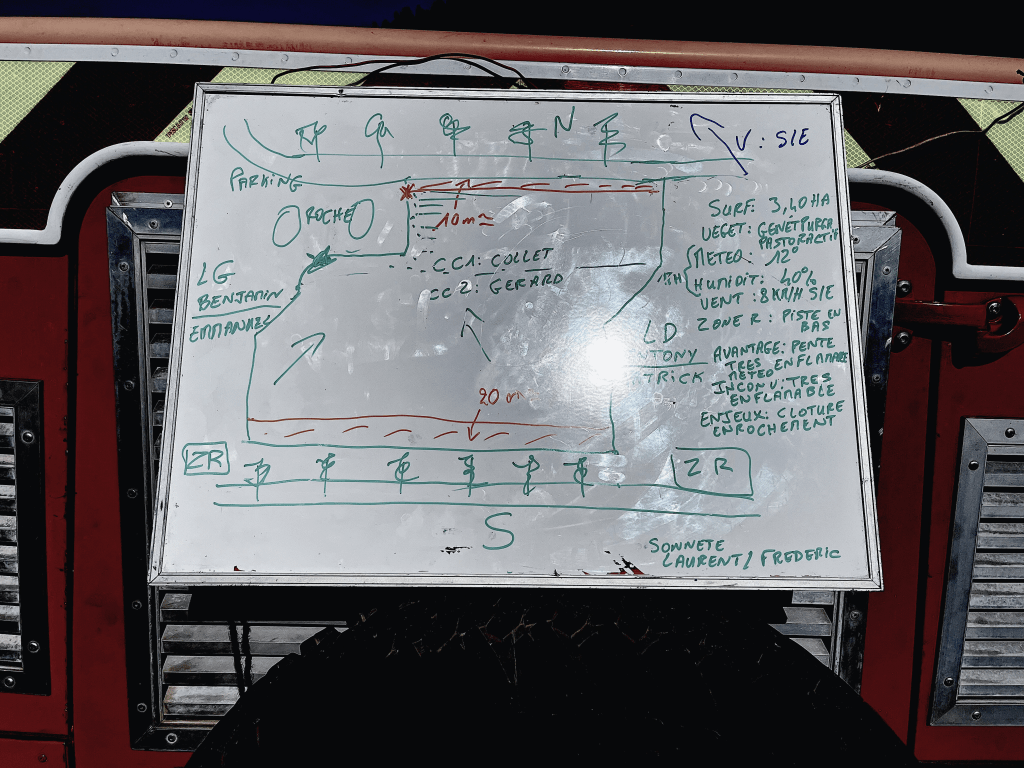 N
V: S/E
PARKING
10m
ROCHE
SURF: 3,40 HA
VEGET: GENET PURGA
PASTORACTIF
METEO: 12°
HUMIDIT: 40%
VENT: 8 KM/H S/E
CC1: COLLET
CC2: GERARD
LG
BENJAMIN
EMMANUEL
LD
ZONE R: PISTE EN
BAS
AVANTAGE: PENTE
TRES ENFLAMABLE
METEO
INCONV: TRES
ENFLAMABLE
ENJEUX: CLOTURE
ENROCHEMENT
20 m
ZR
ZR
S
SONNETE
LAURENT / FREDERIC